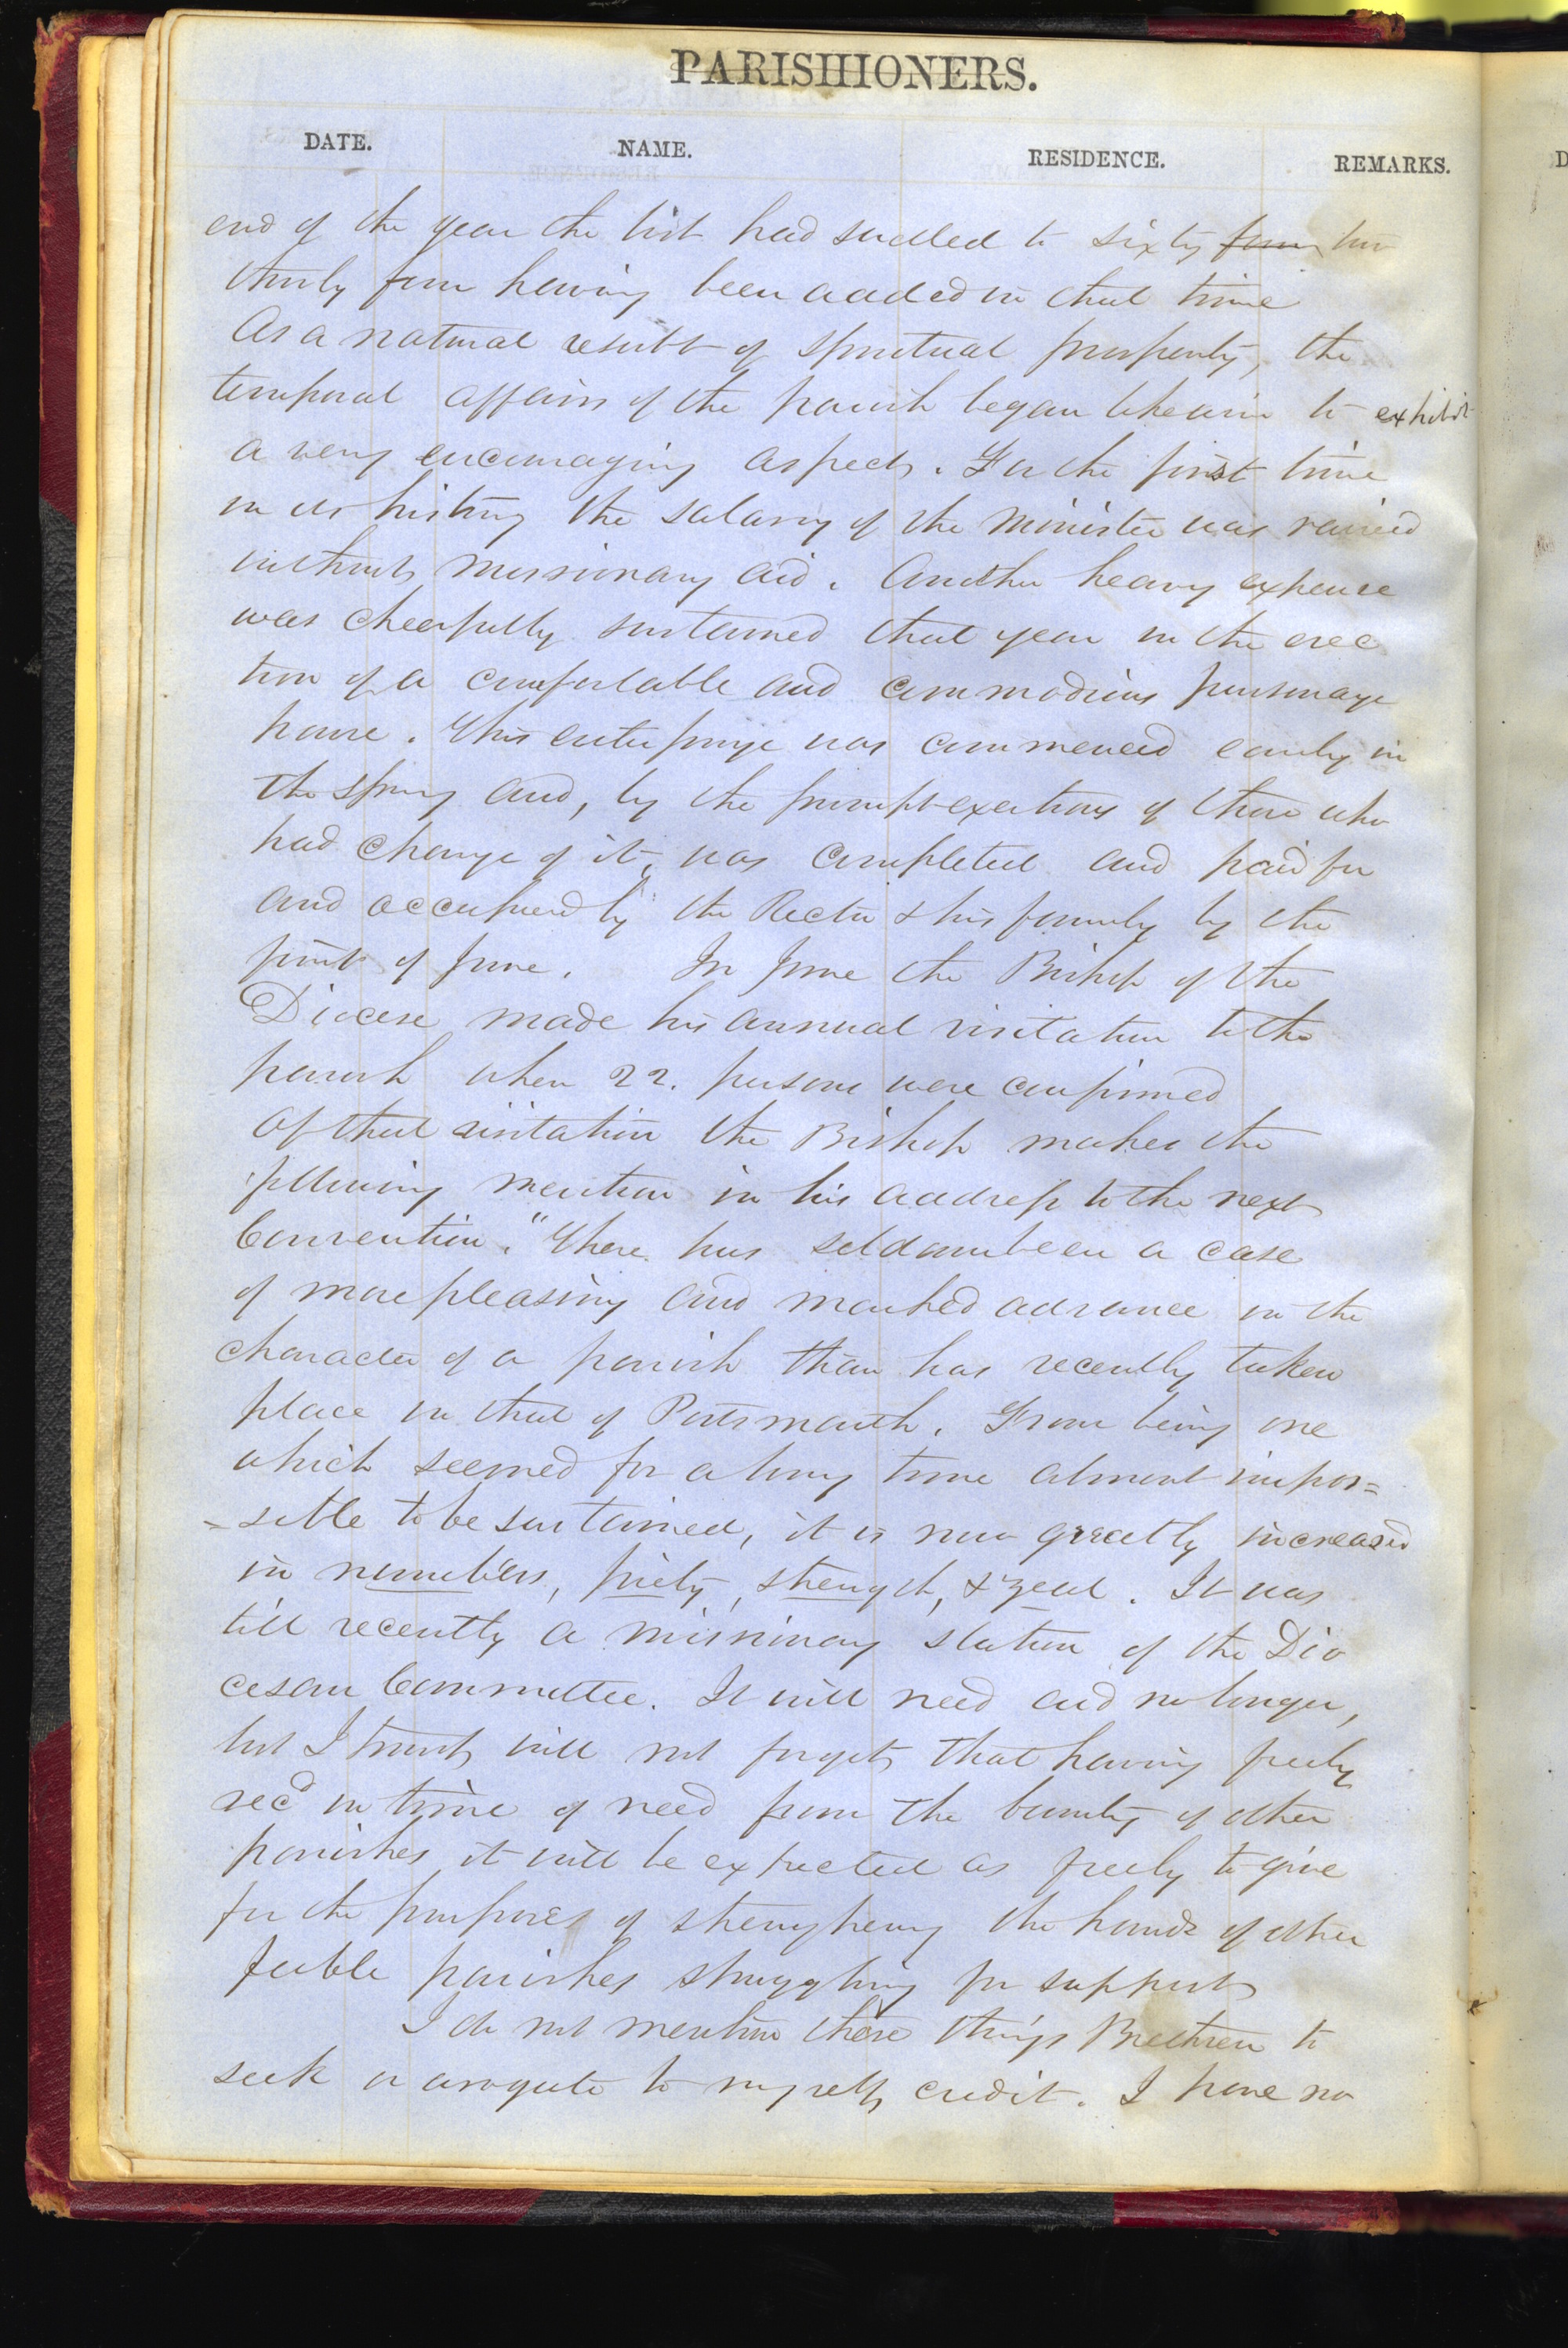 PARISHIONERS.
DATE. NAME. RESIDENCE. REMARKS.
end of the year the list had swelled to sixty four two
thirty four having been added in that time
As a natural result of spiritual prosperity, the
temporal affairs of the parish began likewise to exhibit
a very encouraging aspect. For the first time
in its history the salary of the minister was raised
without missionary aid. Another heavy expense
was cheerfully sustained that year in the erec
tion of a comfortable and commodious parsonage
house. This enterprize was commenced early in
the spring and, by the prompt exertions of those who
had charge of it, was completed and paid for
and occupied by the Rector & his family by the
first of June. In June the Bishop of the
Diocese made his annual visitation to the
parish when 22. persons were confirmed
Of that visitation the Bishop makes the
following mention in his address to the next
Convention. "There has seldom been a case
of more pleasing and marked advance in the
character of a parish than has recently taken
place in that of Portsmouth. From being one
which seemed for a long time almost impos=
=sible to be sustained, it is now greatly increased
in numbers, piety, strength, & zeal. It was
till recently a missionary station of the Dio
cesan Committee. It will need aid no longer,
but I trust will not forget that having freely
recd in time of need from the bounty of other
parishes it will be expected as freely to give
for the purposes of strengthening the hands of other
feeble parishes struggling for support
I do not mention these things Brethren to
seek or arrogate to myself credit. I have no